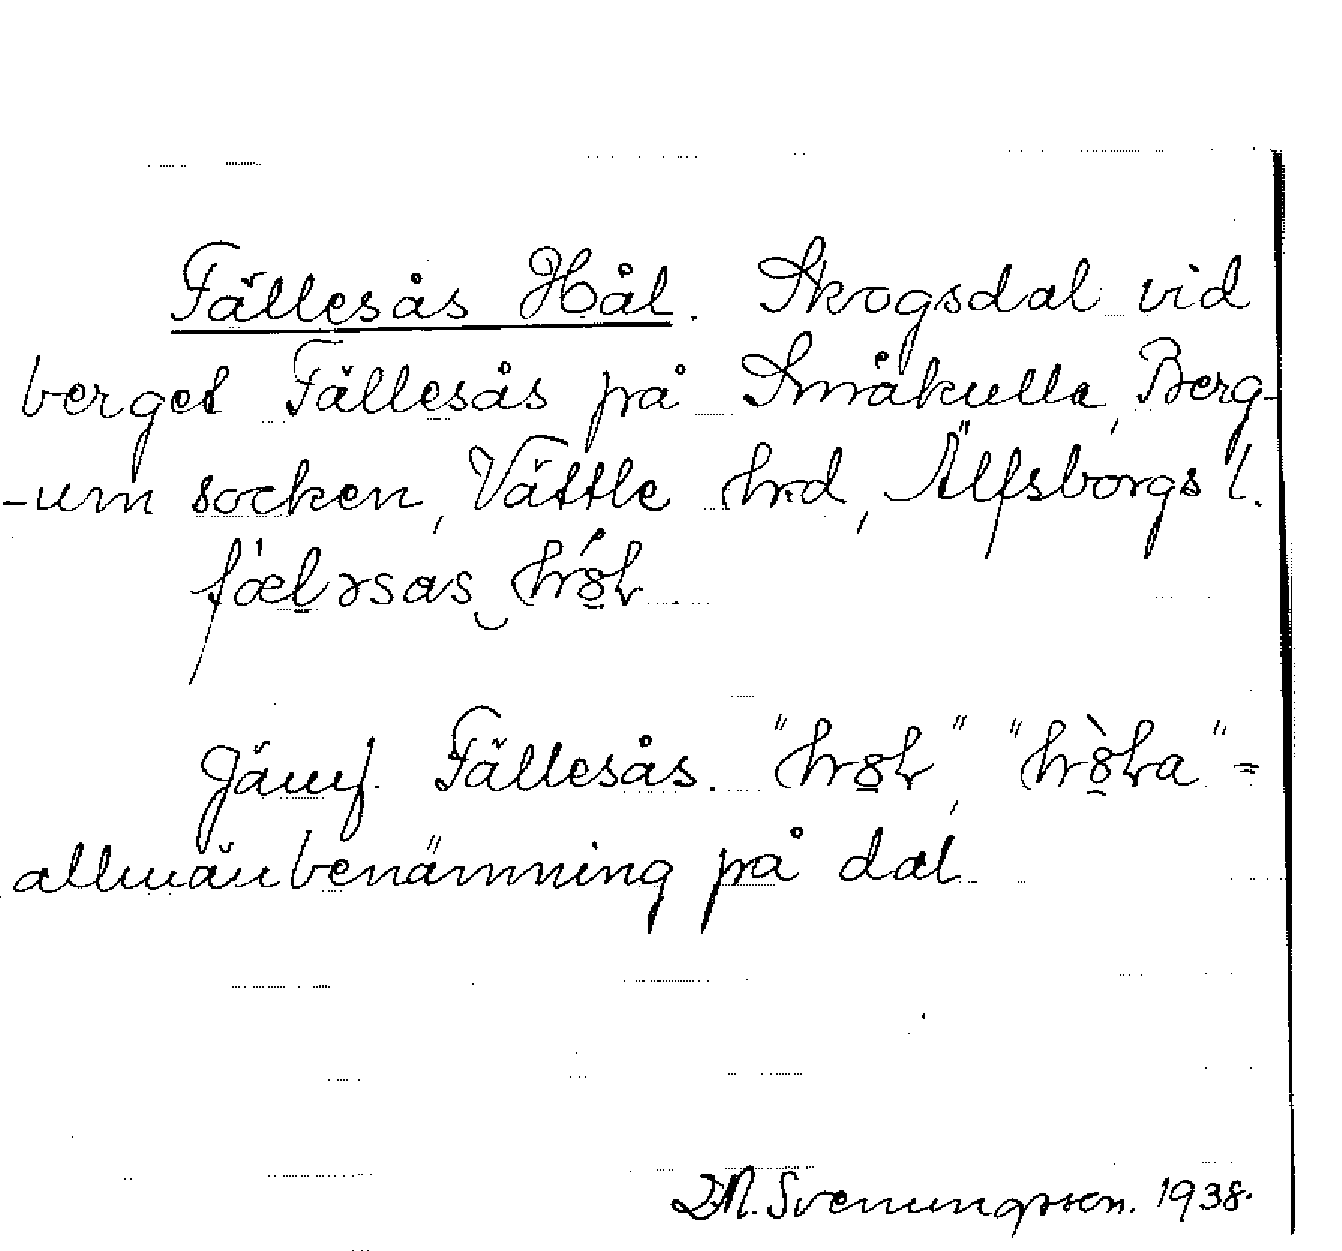 Fällesås Hål. Skogsdal vid
berget Fällesås på Småkulla, Berg-
-um socken, Vättle hrd, Älfsborgs l.
Jämf. Fällesås.
allmän benämning på dal
Svenungsson. 1938.